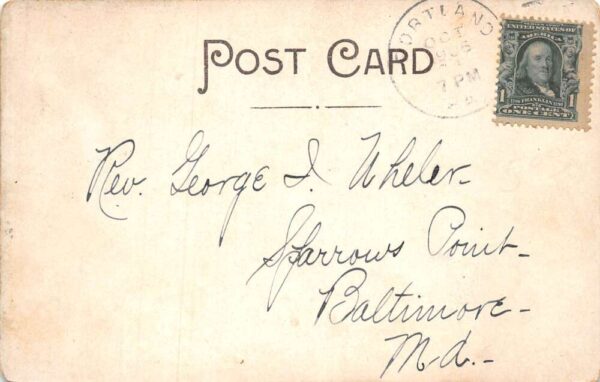 POST CARD
PORTLAND
OCT
1906
7 PM
UNITED STATES OF
AMERICA
1 1
FRANKLIN
POSTAGE
ONE CENT
Rev. George I. Wheler-
Sparrows Point-
Baltimore-
Md.-